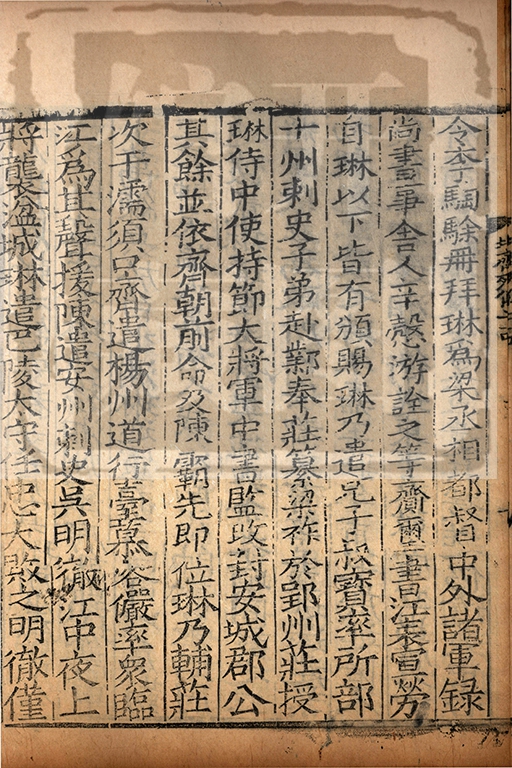 令李騊駼冊拜琳爲梁丞相都督中外諸軍錄
尚書事舍人辛慤游詮之等齎璽書江表宣勞
自琳以下皆有頒賜琳乃遣兄子叔寳率所部
十州刺史子弟赴鄴奉莊纂梁祚於郢州莊授
琳侍中使持節大將軍中書監改封安城郡公
其餘並依齊朝前命及陳霸先即位琳乃輔莊
次于濡須口齊遣楊州道行臺慕容儼率衆臨
江爲其聲援陳遣安州刺史吳明徹江中夜上
將襲湓城琳遣巴陵太守任忠大敗之明徹僅